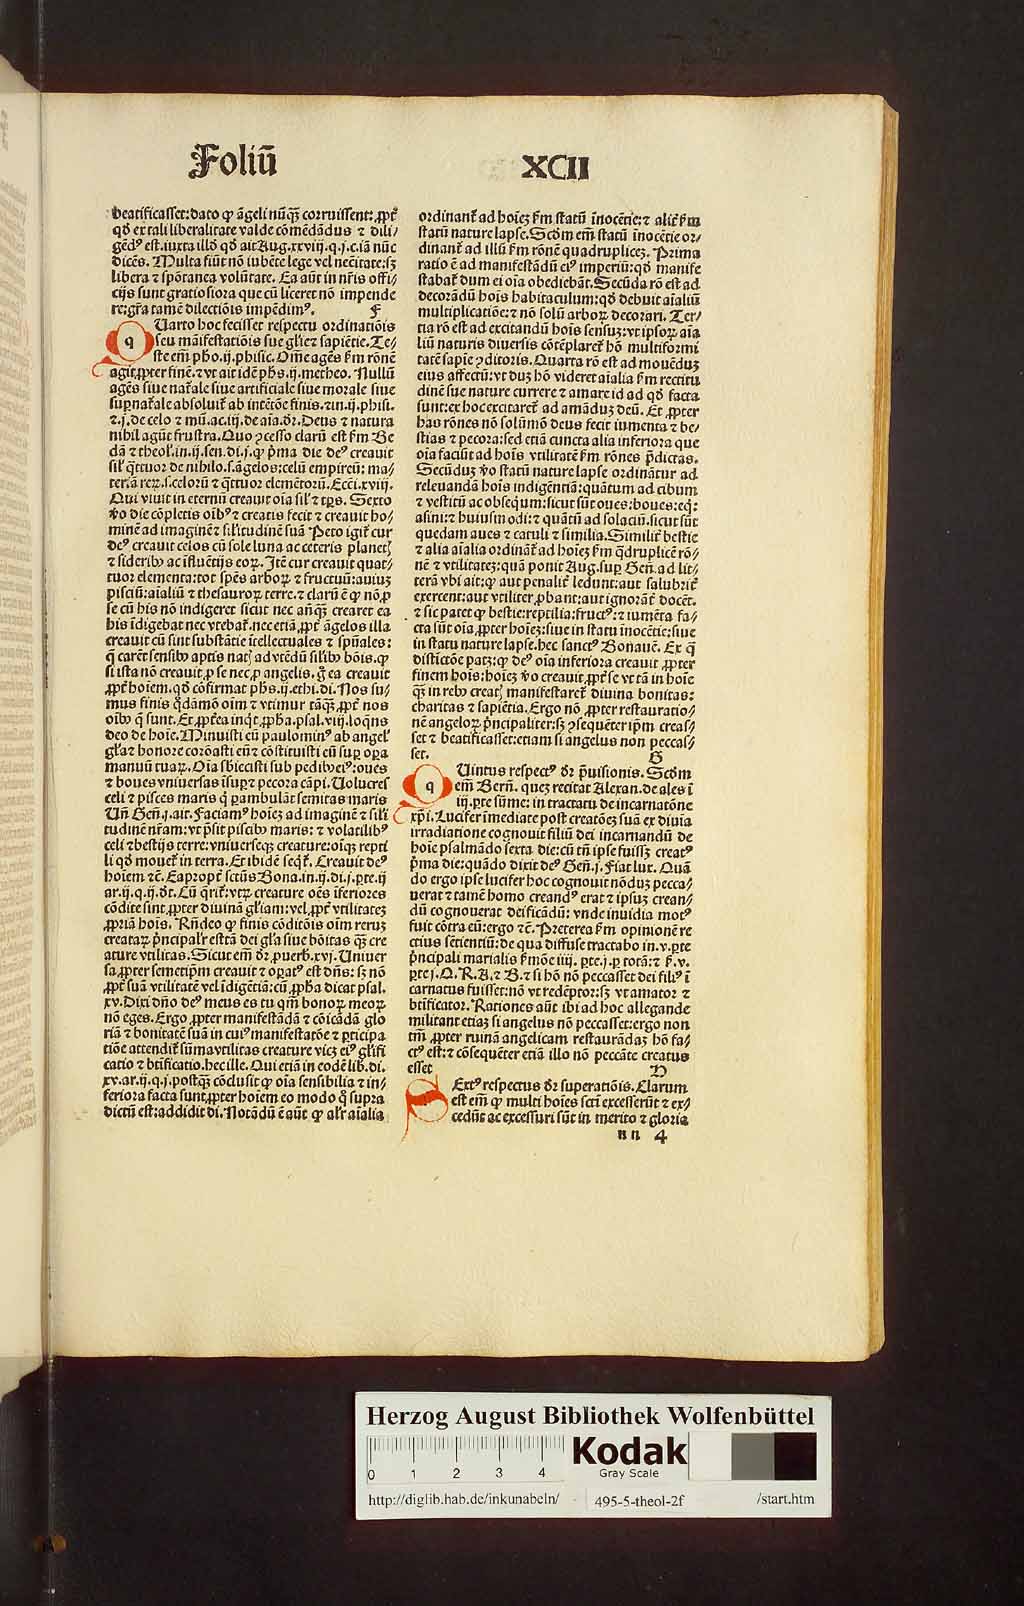 Foliū XCII
beatificasset: dato qͥ āgeli nūqͣꝫ corruissent: ꝓpt̄
qđ ex tali liberalitate valde cōmēdādus ⁊ dili/
gēdꝰ est. iuxta illđ qđ ait Aug. xxviij. q. j. c. iā nūc
dicēs. Multa fiūt nō iubēte lege vel nec̄itate: sꝫ
libera ⁊ spōtanea volūtate. Ea aūt in nr̄is offi/
cijs sunt gratiosiora que cū liceret nō impende
re: gr̄a tamē dilectiōis impēdimꝰ. F
qUarto hoc fecisset respectu ordinatiōis
seu māifestatiōis sue gl'ie ⁊ sapiētie. Te/
ste em̄ pħo. ij. phisic. Om̄e agēs ẜm rōnē
agit ꝓpter finē. ⁊ vt ait idē pħs. ij. metheo. Nullū
agēs siue nat̄ale siue artificiale siue morale siue
suꝑnat̄ale absoluit̄ ab intētōe finis. ⁊ in. ij. phisi.
⁊. j. de celo ⁊ mū. ac. iij. de aīa. dr̄. Deus ⁊ natura
nihil agūt frustra. Quo ꝯcesso clarū est ẜm Be
dā ⁊ theol'. in. ij. sen. di. j. ꝙ p̄ma die deꝰ creauit
sil' qͣttuor de nihilo. s. āgelos: celū empireū: ma/
teriā reꝝ. s. celorū ⁊ qͣttuor elemētorū. Ecc̄i. xviij.
Qui viuit in eternū creauit oīa sil' ⁊ tꝑs. Sexto
v̊o die cōpletis oībꝰ ⁊ creatis fecit ⁊ creauit ho/
minē ad imaginē ⁊ sil'itudinē suā Peto igit̄ cur
deꝰ creauit celos cū sole luna ac ceteris planetꝭ
⁊ sideribꝰ ac īfluētijs eoꝝ. Itē cur creauit quat/
tuor elementa: tot sp̄es arboꝝ ⁊ fructuū: auiuꝫ
pisciū: aīaliū ⁊ thesauroꝝ terre. ⁊ clarū ē ꝙ nō ꝓ
se cū his nō indigeret sicut nec añqͣꝫ crearet ea
his īdigebat nec vtebat̄. nec etiā ꝓpt̄ āgelos illa
creauit cū sint substātie ītellectuales ⁊ spūales:
q̄ carēt sensibꝰ aptis natꝭ ad vtēdū sil'ibꝰ bōis. ꝙ
si ista nō creauit ꝓ se nec ꝓ angelis. g̊ ea creauit
ꝓpt̄ hoīem. qđ cōfirmat pħs. ij. ethi. di. Nos su/
mus finis qͦdāmō oīm ⁊ vtimur tāqͣꝫ ꝓpt̄ nos
oībꝰ q̄ sunt. Et ꝓpt̄ea inqͥt ꝓpħa. psal. viij. loqns
deo de hoīe. Minuisti eū paulominꝰ ab angel'
gl'a ⁊ honore corōasti eū ⁊ cōstituisti eū suꝑ oꝑa
manuū tuaꝝ. Oīa sbiecisti sub pedibꝰ eiꝰ: oues
⁊ boues vniuersas īsuꝑ ⁊ pecora cāpi. Uolucres
celi ⁊ pisces maris q̄ ꝑambulāt semitas maris
Uñ Geñ. j. ait. Faciamꝰ hoīeꝫ ad imaginē ⁊ sil'i
tudinē nr̄am: vt p̄sit piscibꝰ maris: ⁊ volatilibꝰ
celi ⁊ bestijs terre: vniuerseqꝫ creature: oīqꝫ repti
li qđ mouet̄ in terra. Et ibidē seqt̄. Creauit deꝰ
hoīem ⁊c̄. Eapropt̄ sctūs Bona. in. ij. di. j. ꝑte. ij
ar. ij. q. ij. dt. Cū qͥrit̄: vtꝝ creature oēs īferiores
cōdite sint ꝓpter diuinā gl'iam: vel ꝓpt̄ vtilitateꝫ
ꝓpriā hoīs. Rñdeo ꝙ finis cōditōis oīm reruꝫ
creataꝝ p̄ncipalr̄ est̄ dei gl'a siue bōitas qͣꝫ cre
ature vtilitas. Sicut em̄ dr̄ ꝓuerƀ. xvj. Uniuer
sa ꝓpter semetip̄m creauit ⁊ oꝑatꝰ est dñs: sꝫ nō
ꝓpt̄ suā vtilitatē vel īdigētiā: cū ꝓpħa dicat psal.
xv. Dixi dño deꝰ meus es tu qm̄ bonoꝝ meoꝝ
nō eges. Ergo ꝓpter manifestādā ⁊ cōicādā glo
riā ⁊ bonitatē suā in cuiꝰ manifestatōe ⁊ ꝑticipa
tiōe attendit̄ sūma vtilitas creature viꝫ eiꝰ gl'ifi
catio ⁊ btificatio. hec ille. Qui etiā in eodē lib. di.
xv. ar. ij. q. j. postqͣꝫ cōclusit ꝙ oīa sensibilia ⁊ in/
feriora facta sunt ꝓpter hoīem eo modo q̄ supra
dictū est: addidit di. Notādū ē aūt ꝙ alr̄ aīalia
ordinant̄ ad hoīeꝫ ẜm statū īnocētie: ⁊ alit̄ ẜm
statū nature lapse. Scđm em̄ statū inocētie or/
dinant̄ ad illū ẜm rōnē quadrupliceꝫ. Prima
ratio ē ad manifestādū eiꝰ imperiū: qđ manife
stabat̄ dum ei oīa obediebāt. Secūda rō est ad
decorādū hoīs habitaculum: qđ debuit aīaliū
multiplicatiōe: ⁊ nō solū arboꝝ decorari. Ter/
tia rō est ad excitandū hoīs sensuꝫ: vt ipsoꝝ aīa
liū naturis diuersis cōtēplaret̄ hō multiformi
tatē sapiē ꝯditoris. Quarta rō est ad mouēduꝫ
eius affectū: vt duꝫ hō videret aīalia ẜm rectitu
dinē sue nature currere ⁊ amare id ad qđ facta
sunt: ex hoc excitaret̄ ad amāduꝫ deū. Et ꝓpter
has rōnes nō solūmō deus fecit iumenta ⁊ be/
stias ⁊ pecora: sed etiā cuncta alia inferiora que
oīa faciūt ad hoīs vtilitatē ẜm rōnes p̄dictas.
Secūduꝫ v̊o statū nature lapse ordināntur ad
releuandā hoīs indigētiā: quātum ad cibum
⁊ vestitū ac obsequm: sicut sūt oues: boues: eq̄:
asini: ⁊ huiusmodi: ⁊ quātū ad solaciū. sicut sūt
quedam aues ⁊ catuli ⁊ similia. Similit̄ bestie
⁊ alia aīalia ordinat̄ ad hoīeꝫ ẜm qͣdruplicē rō/
nē ⁊ vtilitateꝫ: quā ponit Aug. suꝑ Geñ. ad lit/
terā vbi ait: ꝙ aut penalit̄ ledunt: aut salubrit̄
exercent: aut vtiliter ꝓbant: aut ignorāt̄ docēt.
⁊ sic patet ꝙ bestie: reptilia: fructꝰ: ⁊ iumēta fa/
cta sūt oīa ꝓpter hoīeꝫ: siue in statu inocētie: siue
in statu nature lapse. hec sanctꝰ Bonauē. Ex q̄
distictōe patꝫ: ꝙ deꝰ oīa inferiora creauit ꝓpter
finem hoīs: hoīeꝫ v̊o creauit ꝓpt̄ se vt tā in hoīe
qͣꝫ in rebꝰ creatꝭ manifestaret̄ diuina bonitas:
charitas ⁊ sapiētia. Ergo nō ꝓpter restauratio/
nē angeloꝝ p̄ncipaliter: sꝫ ꝯsequēter ip̄m creas/
set ⁊ beatificasset: etiam si angelus non peccas/
set. G
qUintus respectꝰ dr̄ p̄uisionis. Scđm
em̄ Berñ. queꝫ recitat Alexan. de ales ī
iij. ꝑte sūme: in tractatu de incarnatōne
xp̄i. Lucifer īmediate post creatōeꝫ suā ex diuīa
irradiatione cognouit filiū dei incarnandū de
hoīe psalmādo sexta die: cū tn̄ ipse fuissꝫ creatꝰ
p̄ma die: quādo dixit deꝰ Geñ. j. Fiat lux. Quā
do ergo ipse lucifer hoc cognouit nōduꝫ pecca/
uerat ⁊ tamē homo creandꝰ erat ⁊ ipsuꝫ crean/
dū cognouerat deificādū: vnde inuidia motꝰ
fuit cōtra eū: ergo ⁊c̄. Preterea ẜm opinionē re
ctius sētientiū: de qua diffuse tractabo in. v. ꝑte
p̄ncipali marialis ẜmōe iiij. ꝑte. j. ꝑ totā: ⁊ ẜ. v.
ꝑte j. Q. R. A. ⁊ B. ⁊ si hō nō peccasset dei filiꝰ ī
carnatus fuisset: nō vt redēptor: sꝫ vt amator ⁊
btificator. Rationes aūt ibi ad hoc allegande
militant etiaꝫ si angelus nō peccasset: ergo non
tm̄ ꝓpter ruinā angelicam restaurādaꝫ hō fa/
ctꝰ est: ⁊ cōsequēter etiā illo nō peccāte creatus
esset H
SExtꝰ respectus dr̄ superatiōis. Clarum
est em̄ ꝙ multi hoīes sctī excesserūt ⁊ ex/
cedūt ac excessuri sūt in merito ⁊ gloria
nn 4
Herzog August Bibliothek Wolfenbüttel
0 1 2 3 4
Kodak
Gray Scale
http://diglib.hab.de/inkunabeln/ 495-5-theol-2f /start.htm